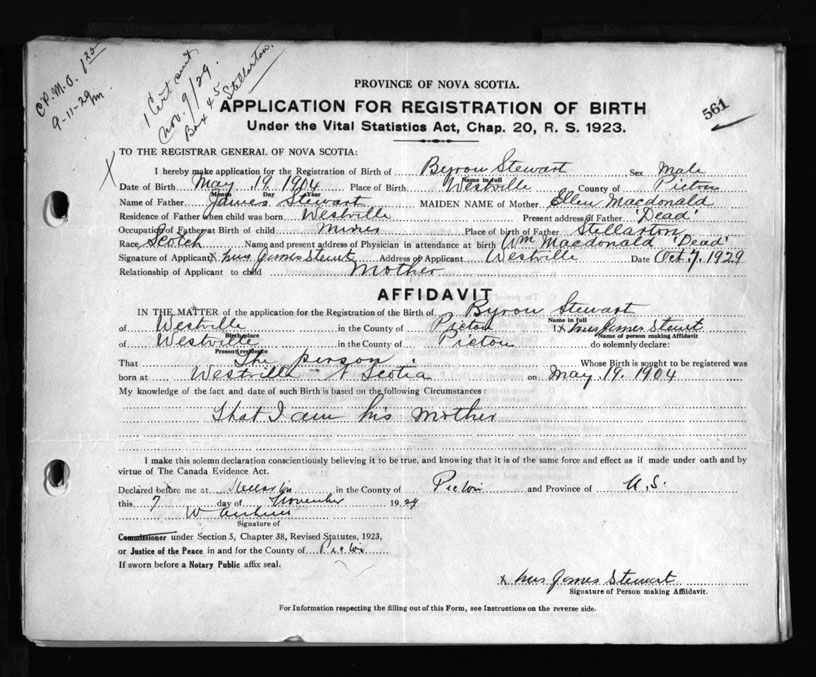 C.P.M.O. 1.25
9-11-29
1 Cert sent
Nov. 9/29.
Box 45
Stellarton.
561
PROVINCE OF NOVA SCOTIA.
APPLICATION FOR REGISTRATION OF BIRTH
Under the Vital Statistics Act, Chap. 20, R. S. 1923.
X TO THE REGISTRAR GENERAL OF NOVA SCOTIA:
I hereby make application for the Registration of Birth of Byron Stewart Sex Male
Name in full
Date of Birth May 19 1904 Place of Birth Westville County of Pictou
Month Day Year
Name of Father James Stewart MAIDEN NAME of Mother Ellen Macdonald
Residence of Father when child was born Westville Present address of Father 'Dead'
Occupation of Father at Birth of child Miner Place of birth of Father Stellarton
Race Scotch Name and present address of Physician in attendance at birth Wm Macdonald 'Dead'
Signature of Applicant X Mrs James Stewart Address of Applicant Westville Date Oct. 7. 1929
Relationship of Applicant to child Mother
AFFIDAVIT
IN THE MATTER of the application for the Registration of the Birth of Byron Stewart
Name in full
of Westville in the County of Pictou I X Mrs James Stewart
Birth place Name of person making Affidavit
of Westville in the County of Pictou do solemnly declare:
Present residence
That The person Whose Birth is sought to be registered was
born at Westville N Scotia on May 19. 1904
My knowledge of the fact and date of such Birth is based on the following Circumstances:
That I am his Mother
I make this solemn declaration conscientiously believing it to be true, and knowing that it is of the same force and effect as if made under oath and by
virtue of The Canada Evidence Act.
Declared before me at in the County of Pictou and Province of N.S.
this 7 day of November 1929
Signature of
Commissioner under Section 5, Chapter 38, Revised Statutes, 1923,
or Justice of the Peace in and for the County of Pictou
If sworn before a Notary Public affix seal.
x Mrs James Stewart
Signature of Person making Affidavit.
For Information respecting the filling out of this Form, see Instructions on the reverse side.